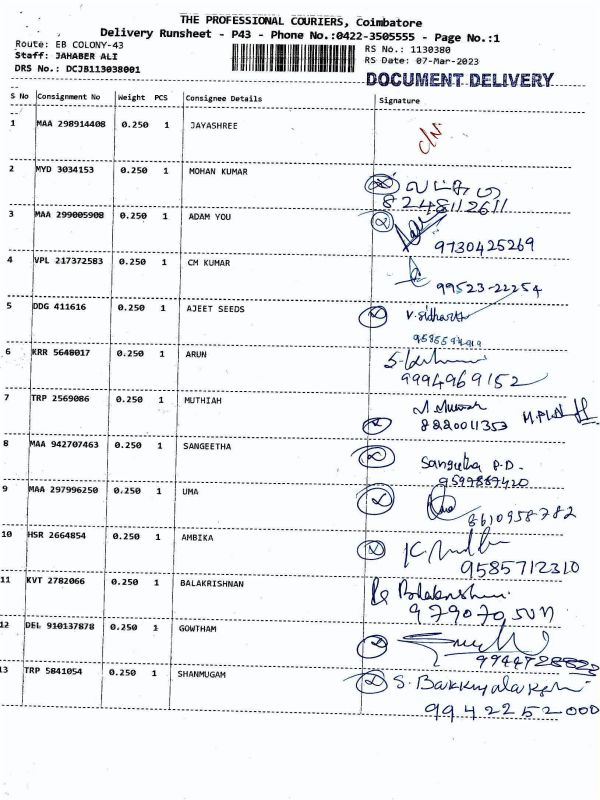 THE PROFESSIONAL COURIERS, Coimbatore
Delivery Runsheet - P43 - Phone No.:0422-3505555 - Page No.:1
Route: EB COLONY-43
RS No.: 1130380
Staff: JAHABER ALI
RS Date: 07-Mar-2023
DRS No.: DCJB113038001
DOCUMENT DELIVERY
S No Consignment No Weight PCS Consignee Details Signature
1 MAA 298914408 0.250 1 JAYASHREE
2 MYD 3034153 0.250 1 MOHAN KUMAR
8248112611
3 MAA 299005908 0.250 1 ADAM YOU
9730425269
4 VPL 217372583 0.250 1 CM KUMAR
99523-22254
5 DDG 411616 0.250 1 AJEET SEEDS V.Sidharth
6 KRR 5648017 0.250 1 ARUN
9994969152
7 TRP 2569086 0.250 1 MUTHIAH
8220011353
8 MAA 942707463 0.250 1 SANGEETHA
Sangeetha P.D.
9 MAA 297996250 0.250 1 UMA
8610958782
10 HSR 2664854 0.250 1 AMBIKA
9585712310
11 KVT 2782066 0.250 1 BALAKRISHNAN
12 DEL 910137878 0.250 1 GOWTHAM
13 TRP 5841054 0.250 1 SHANMUGAM
9942252000